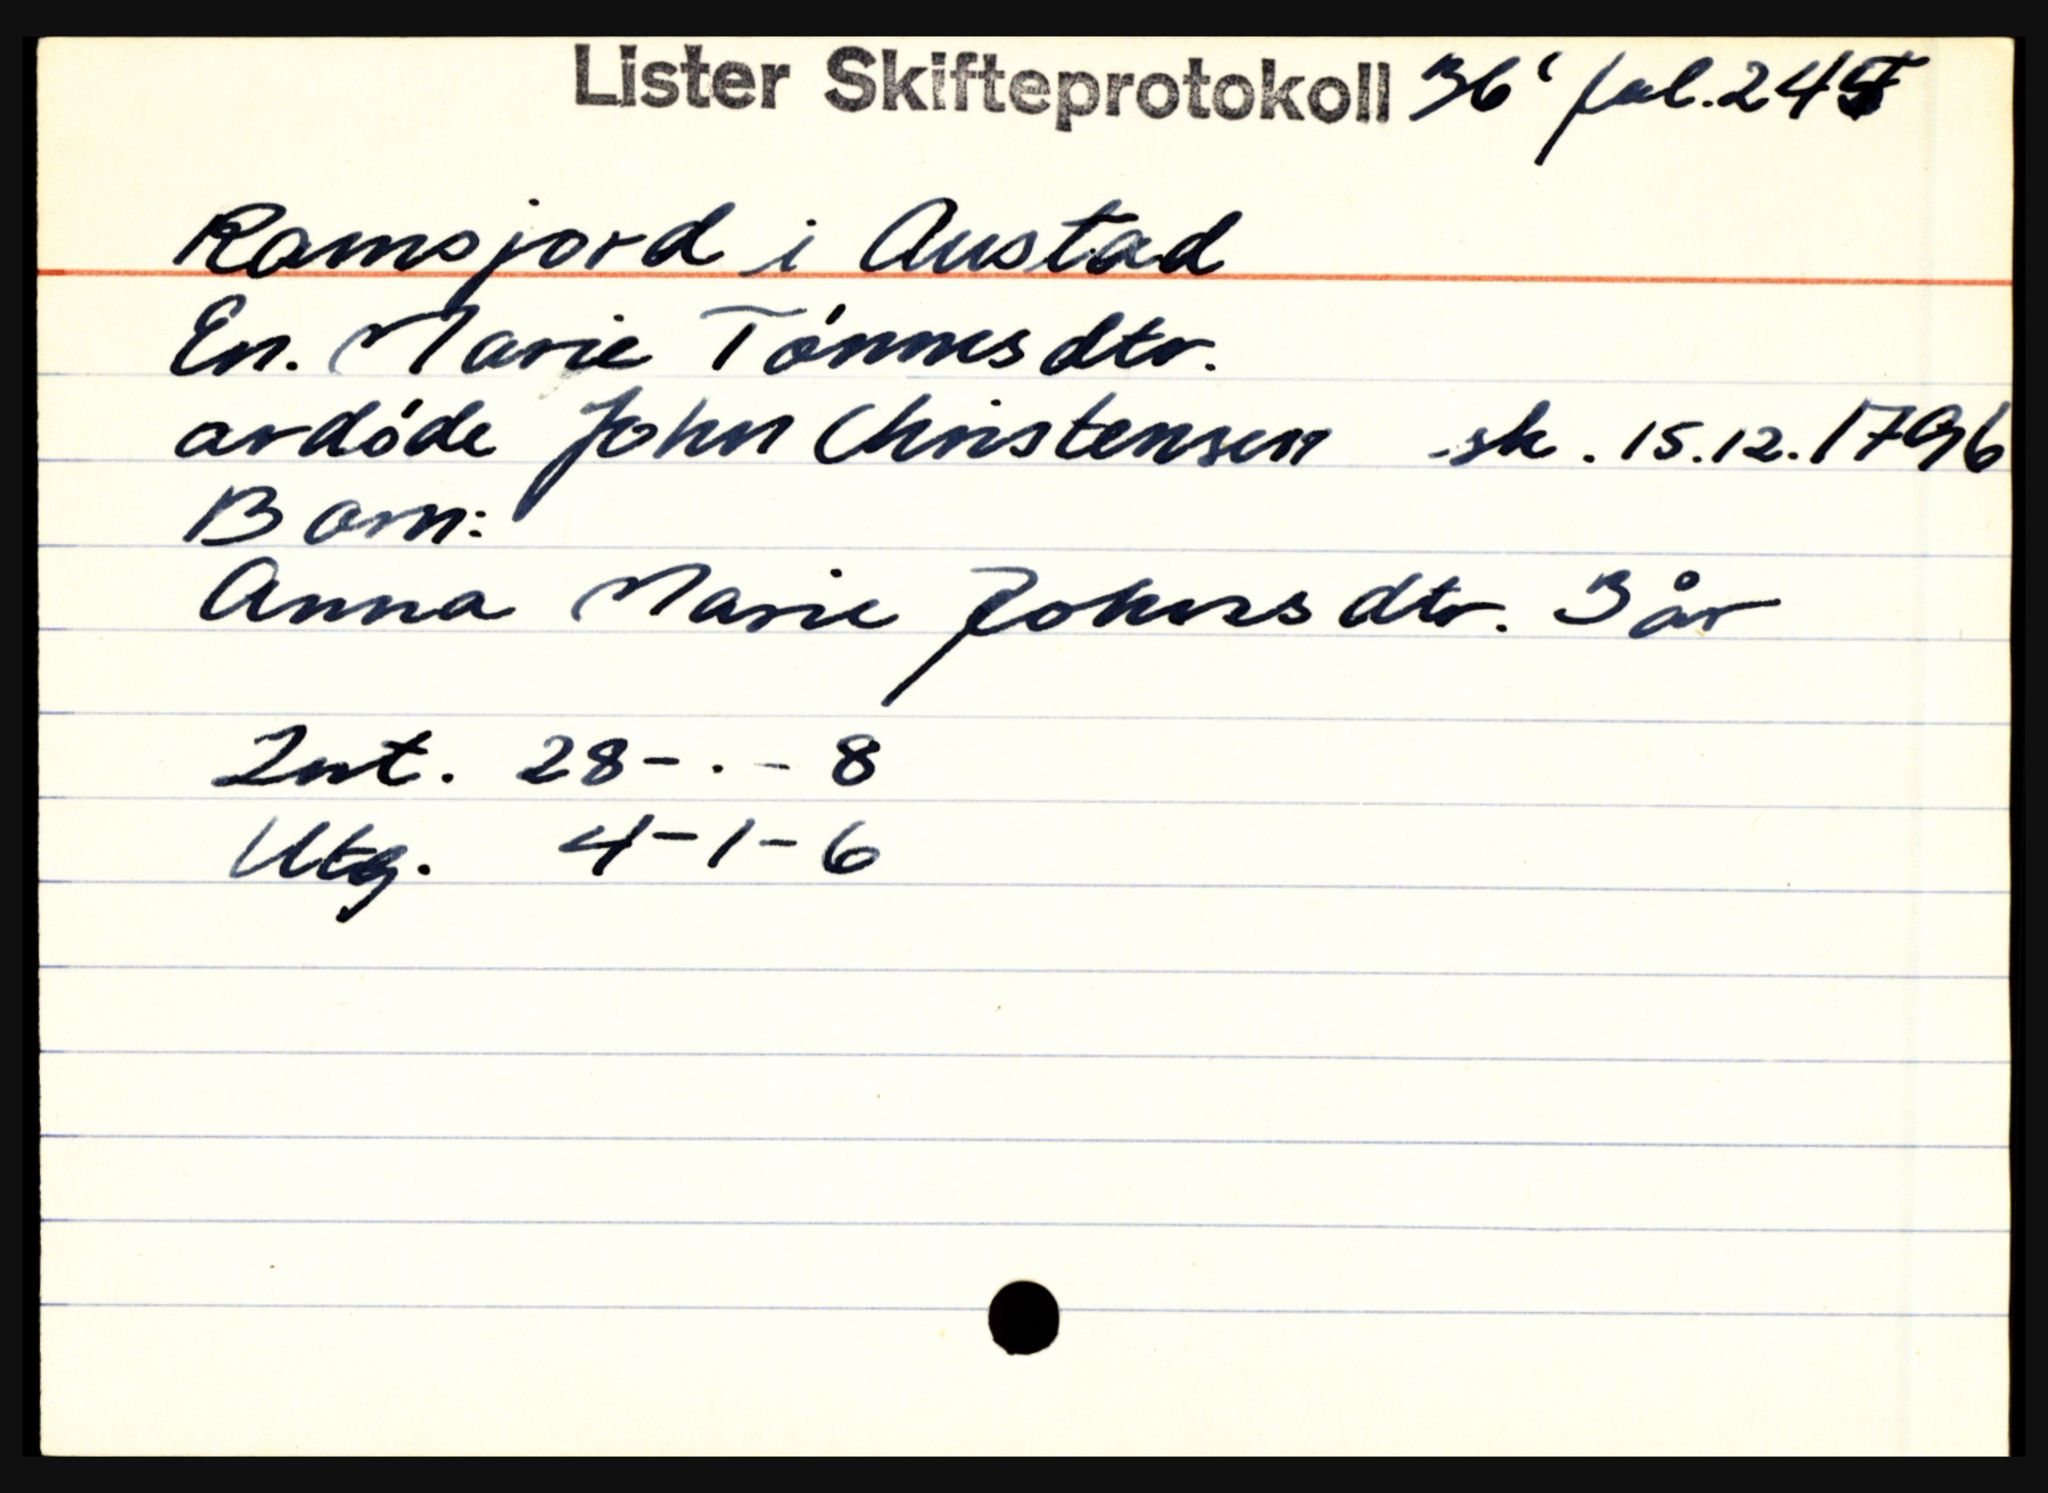 Lister Skifteprotokoll 36' fol. 245
Ramsjord i Austad
En. Marie Tónnesdtr.
avdóde John Christensen sk. 15.12.1796
Born:
Anna Marie Johnsdtr. 3 år
Int. 28-.-8
Utg. 4-1-6